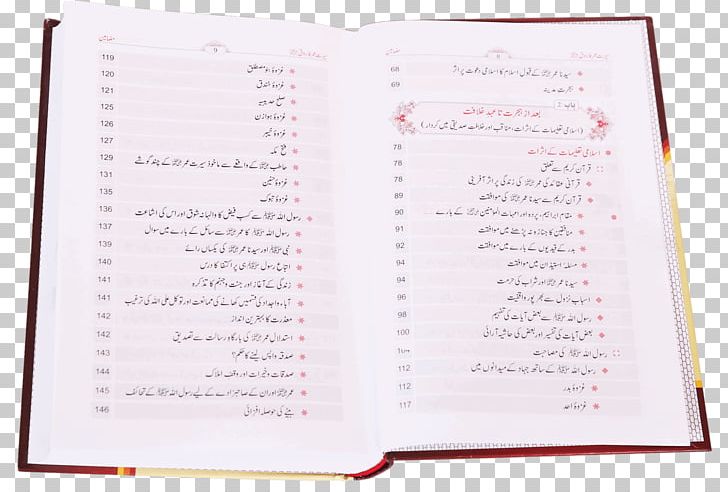 مضامین 8 سیرت عمر فاروق
سیدنا عمر کے قبول اسلام کا اسلامی دعوت پر اثر 68
ہجرت مدینہ 69
باب: 2
بعد از ہجرت تا عہد خلافت
(اسلامی تعلیمات کے اثرات، مناقب اور خلافت صدیقی میں کردار)
اسلامی تعلیمات کے اثرات 78
قرآن کریم سے تعلق 78
قرآنی عقائد کی عمر کی زندگی پر اثر آفرینی 78
قرآن کریم سے سیدنا عمر کی موافقت
مقام ابراہیم، پردہ اور امہات المومنین کے بارے 90
منافقین کا جنازہ نہ پڑھنے میں موافقت 91
بدر کے قیدیوں کے بارے میں موافقت 92
مسئلہ استیذان میں موافقت 94
سیدنا عمر اور شراب کی حرمت 94
اسباب نزول سے بھرپور واقفیت 95
رسول اللہ ﷺ سے بعض آیات کی تفہیم 98
بعض آیات کی تفسیر اور بعض کی حاشیہ آرائی 100
رسول اللہ ﷺ کی مصاحبت
رسول اللہ ﷺ کے ساتھ جہاد کے میدانوں میں 112
غزوۂ بدر 112
غزوۂ احد 117
مضامین 9 سیرت عمر فاروق
غزوۂ بنو مصطلق 119
غزوۂ خندق 120
صلح حدیبیہ 121
غزوۂ ہوازن 126
غزوۂ خیبر 126
فتح مکہ 127
حاطب کے واقعے سے ماخوذ سیرت عمر کے چند گوشے 129
غزوۂ حنین 131
غزوۂ تبوک 135
رسول اللہ ﷺ سے کسب فیض کا والہانہ شوق اور اس کی اشاعت 136
رسول اللہ ﷺ سے سائل کے بارے میں سوال 138
نبی ﷺ اور سیدنا عمر کی یکساں رائے 139
اتباع رسول ﷺ ہی پر اکتفا کا درس 140
زندگی کے آغاز اور جنت و جہنم کا تذکرہ 141
آباء و اجداد کی قسمیں کھانے کی ممانعت اور توکل علی اللہ کی ترغیب 141
معذرت کا بہترین انداز 142
سیدنا عمر کی بارگاہ رسالت سے تصدیق 142
صدقہ واپس لینے کا حکم؟ 143
صدقات و خیرات اور وقف املاک 144
عمر اور ان کے صاحبزادے کے لیے رسول اللہ ﷺ کے تحائف 145
بیٹے کی حوصلہ افزائی 146